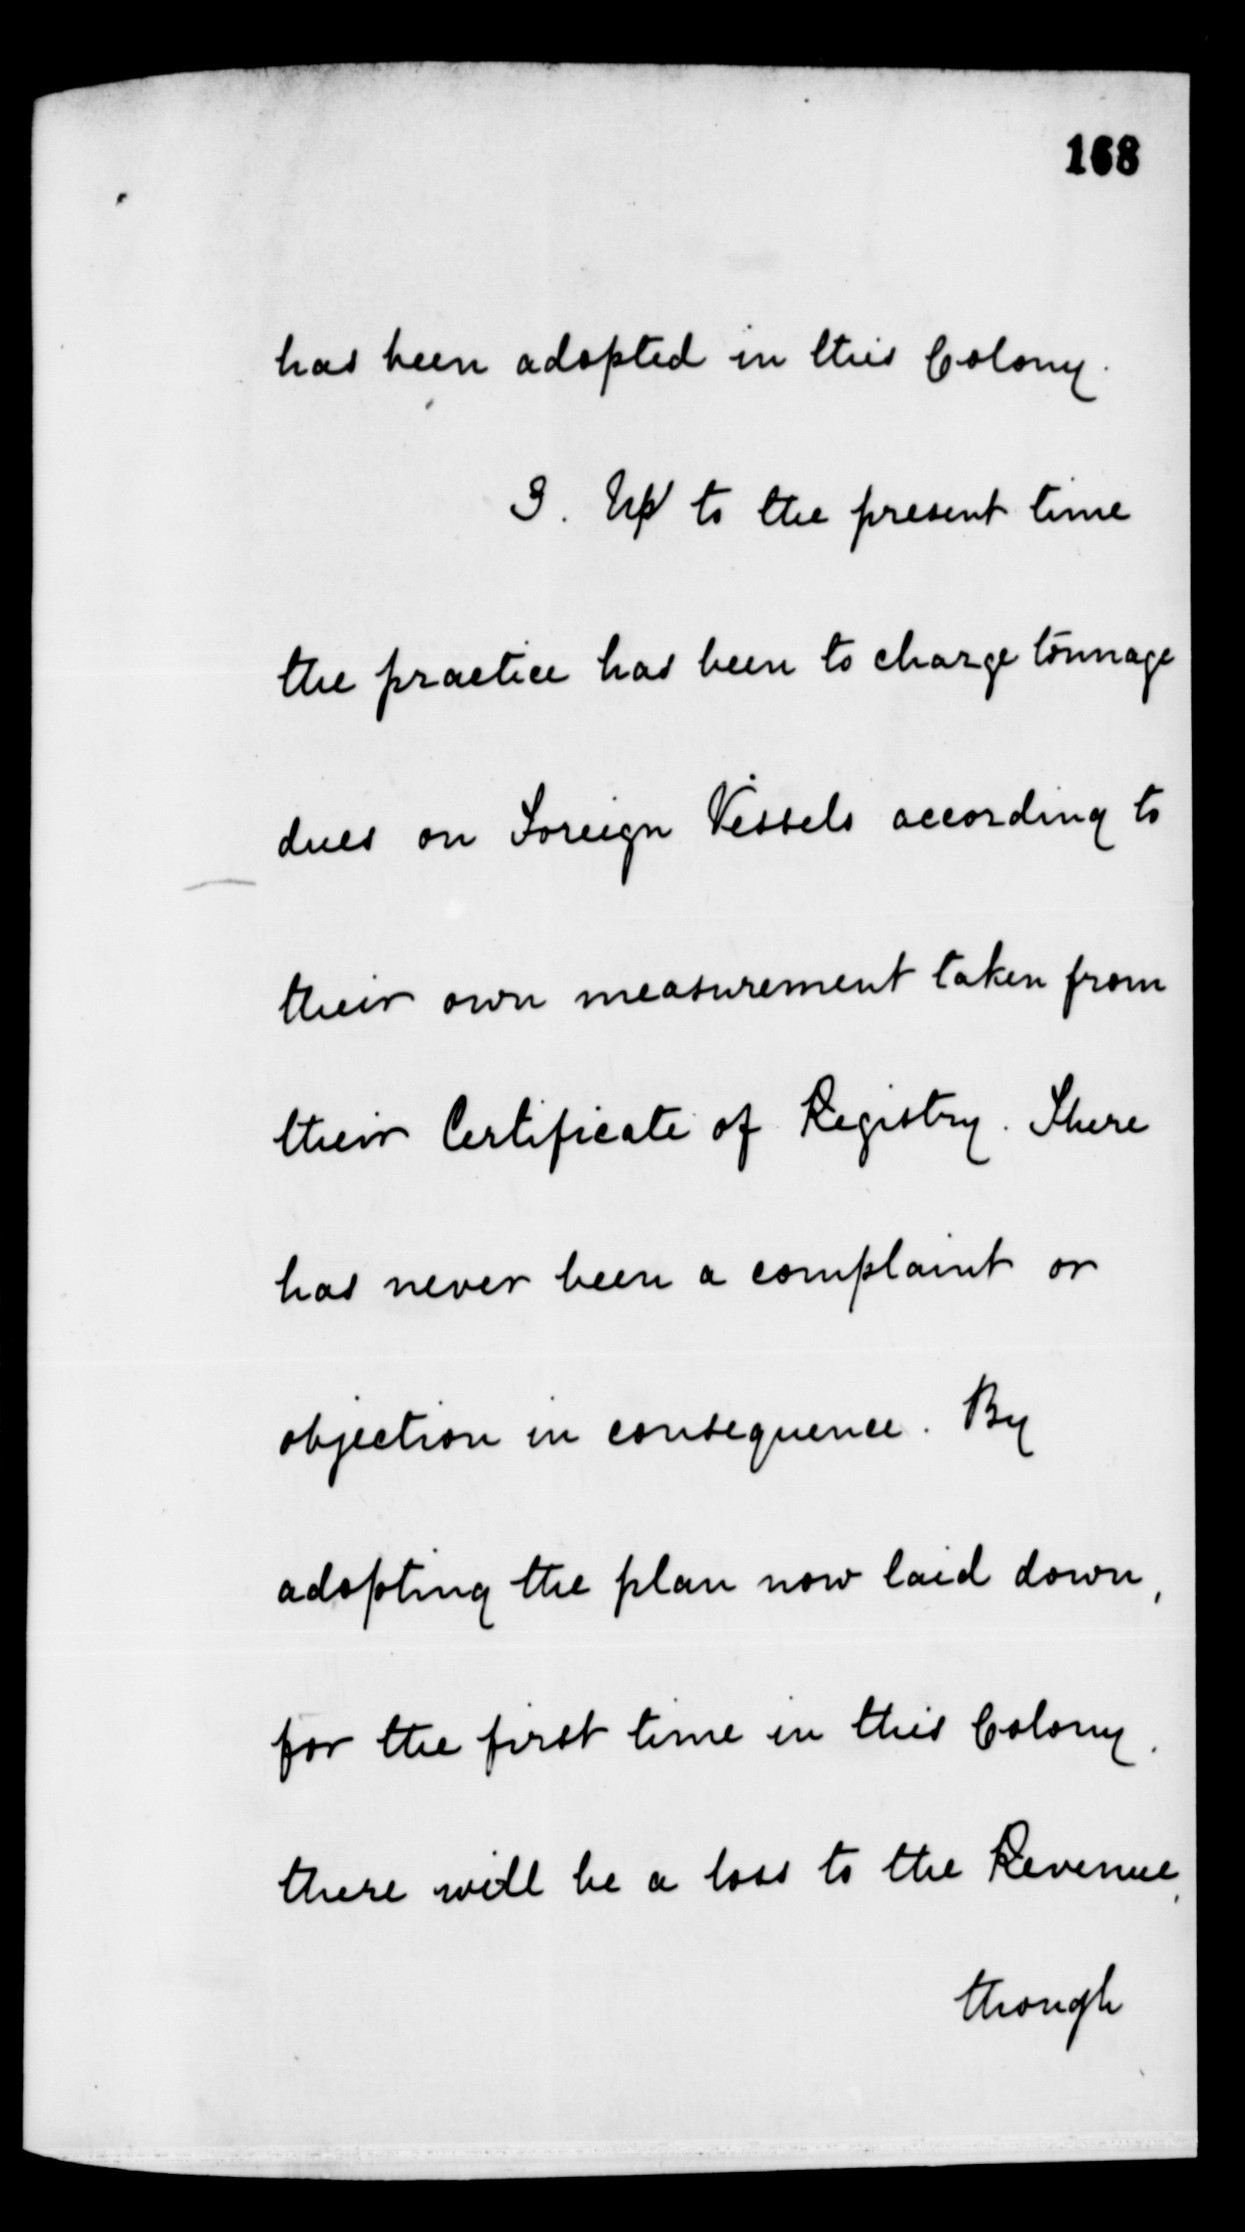 168
has been adopted in this Colony.
3. Up to the present time
the practice has been to charge tonnage
dues on Foreign Vessels according to
their own measurement taken from
their Certificate of Registry. There
has never been a complaint or
objection in consequence. By
adopting the plan now laid down,
for the first time in this Colony.
there will be a loss to the Revenue,
though